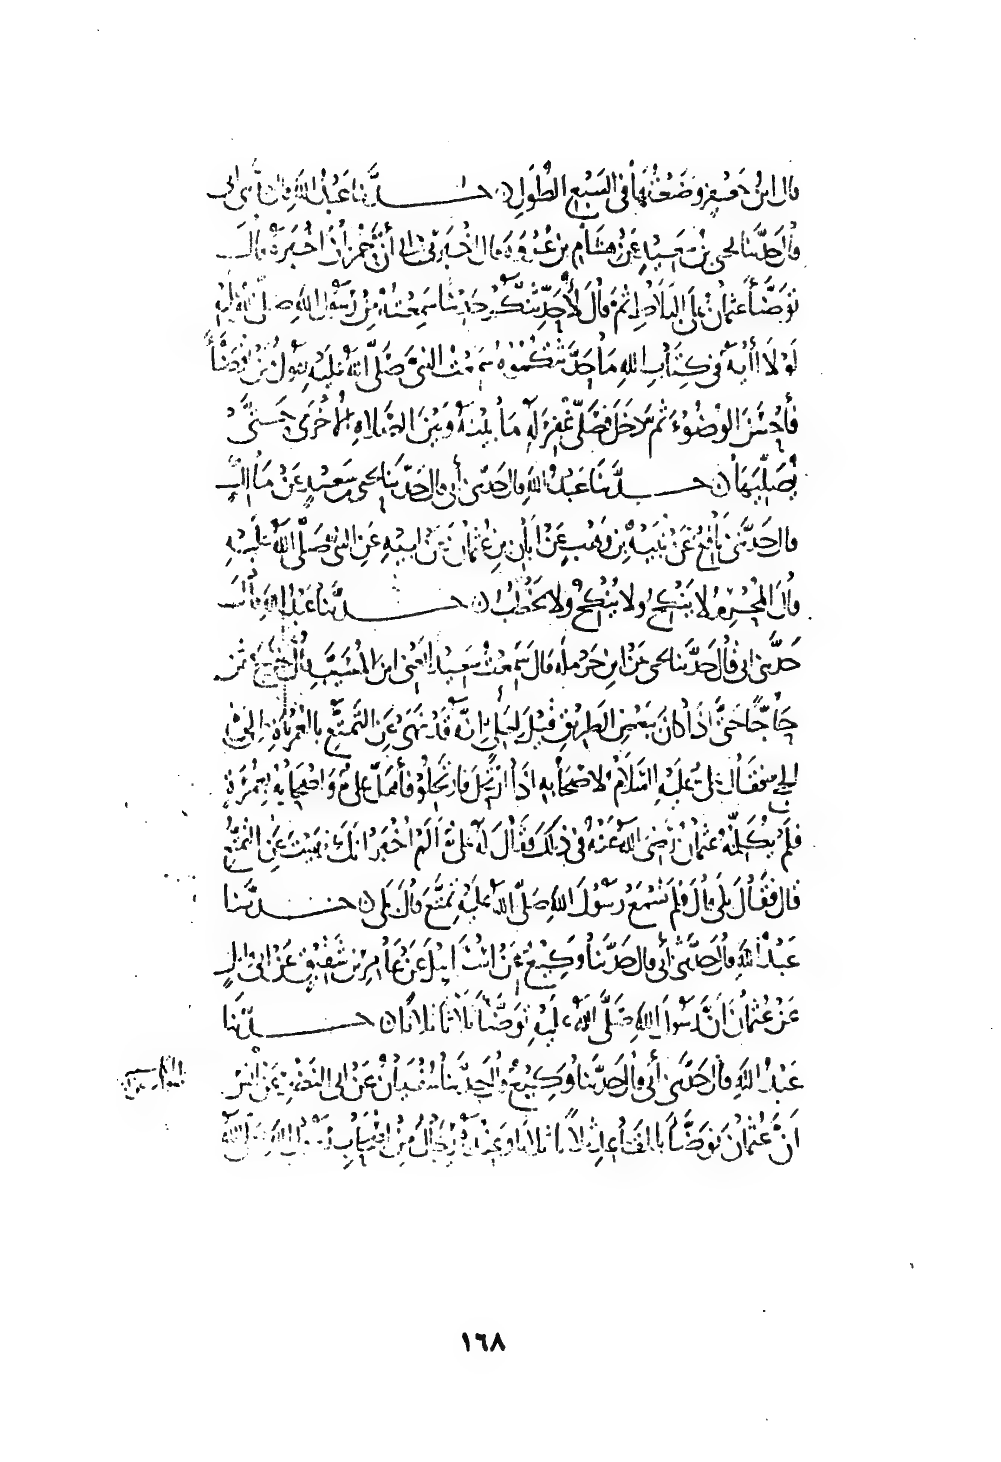 قال ابن جعفر وضعتها في السبع الطول حدثنا عبد الله قال حدثني ابي
قال حدثنا يحيى بن سعيد عن هشام بن عروة قال اخبرني ابي أن حمران اخبره قال
توضأ عثمان على البلاط ثم قال لأحدثنكم حديثا سمعته من رسول الله صلى الله عليه
لولا آية في كتاب الله ما حدثتكموه سمعت النبي صلى الله عليه يقول من توضأ
فأحسن الوضوء ثم دخل فصلى غفر له ما بينه وبين الصلاة الأخرى حتى
يصليها حدثنا عبد الله قال حدثني أبي قال حدثنا يحيى بن سعيد عن مالك
قال حدثني نافع عن نبيه بن وهب عن أبان بن عثمان عن ابيه عن النبي صلى الله عليه
قال المحرم لا ينكح ولا ينكح ولا يخطب حدثنا عبد الله قال
حدثني ابي قال حدثنا يحيى عن ابن حرملة قال سمعت سعيدا يعني ابن المسيب قال خرج عثمن
حاجا حتى اذا كان ببعض الطريق قيل لعلي إنه قد نهى عن التمتع بالعمرة إلى
الحج فقال علي عليه السلام لاصحابه اذا ارتحل فارتحلوا فأهل علي واصحابه بعمرة
فلم يكلمه عثمان رضي الله عنه في ذلك فقال له علي ألم أخبر انك نهيت عن التمتع
قال فقال بلى قال فلم تسمع رسول الله صلى الله عليه تمتع قال بلى حدثنا
عبد الله قال حدثني أبي قال حدثنا وكيع عن اسرائيل عن عامر بن شقيق عن ابي وائل
عن عثمان ان رسول الله صلى الله عليه توضأ ثلاثا ثلاثا حدثنا
عبد الله قال حدثني أبي قال حدثنا وكيع قال حدثنا سفيان عن ابي النضر عن انس
ان عثمان توضأ بالمقاعد ثلاثا ثلاثا وعنده رجال من اصحاب رسول الله صلى الله
١٦٨